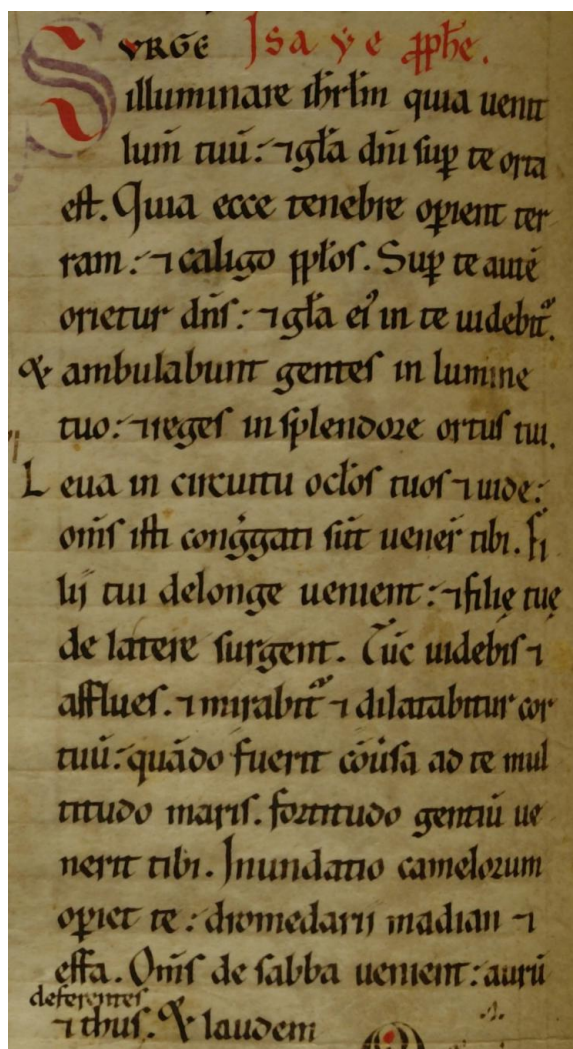 SURGE Isaẏe ꝓph̄e.
illuminare ih̄rl̄m quia uenit
lum̄ tuū: ⁊ gl̄a dn̄i suꝑ te orta
est. Quia ecce tenebre oꝑient ter
ram: ⁊ caligo ppl̄os. Suꝑ te autē
orietur dn̄s: ⁊ gl̄a ei᾽ in te uidebit᷑.
& ambulabunt gentes in lumine
tuo: ⁊ reges in splendore ortus tui.
Leua in circuitu ocl̄os tuos ⁊ uide:
om̄s isti cong̊gati sūt uener̄ tibi. Fi
lij tui delonge uenient: ⁊ filię tuę
de latere surgent. Tūc uidebis ⁊
afflues. ⁊ mirabit᷑ ⁊ dilatabitur cor
tuū: quādo fuerit cōūsa ad te mul
titudo maris. fortitudo gentiū ue
nerit tibi. Inundatio camelorum
oꝑiet te: dromedarij madian ⁊
effa. Om̄s de sabba uenient: aurū
deferentes
⁊ thus. & laudem